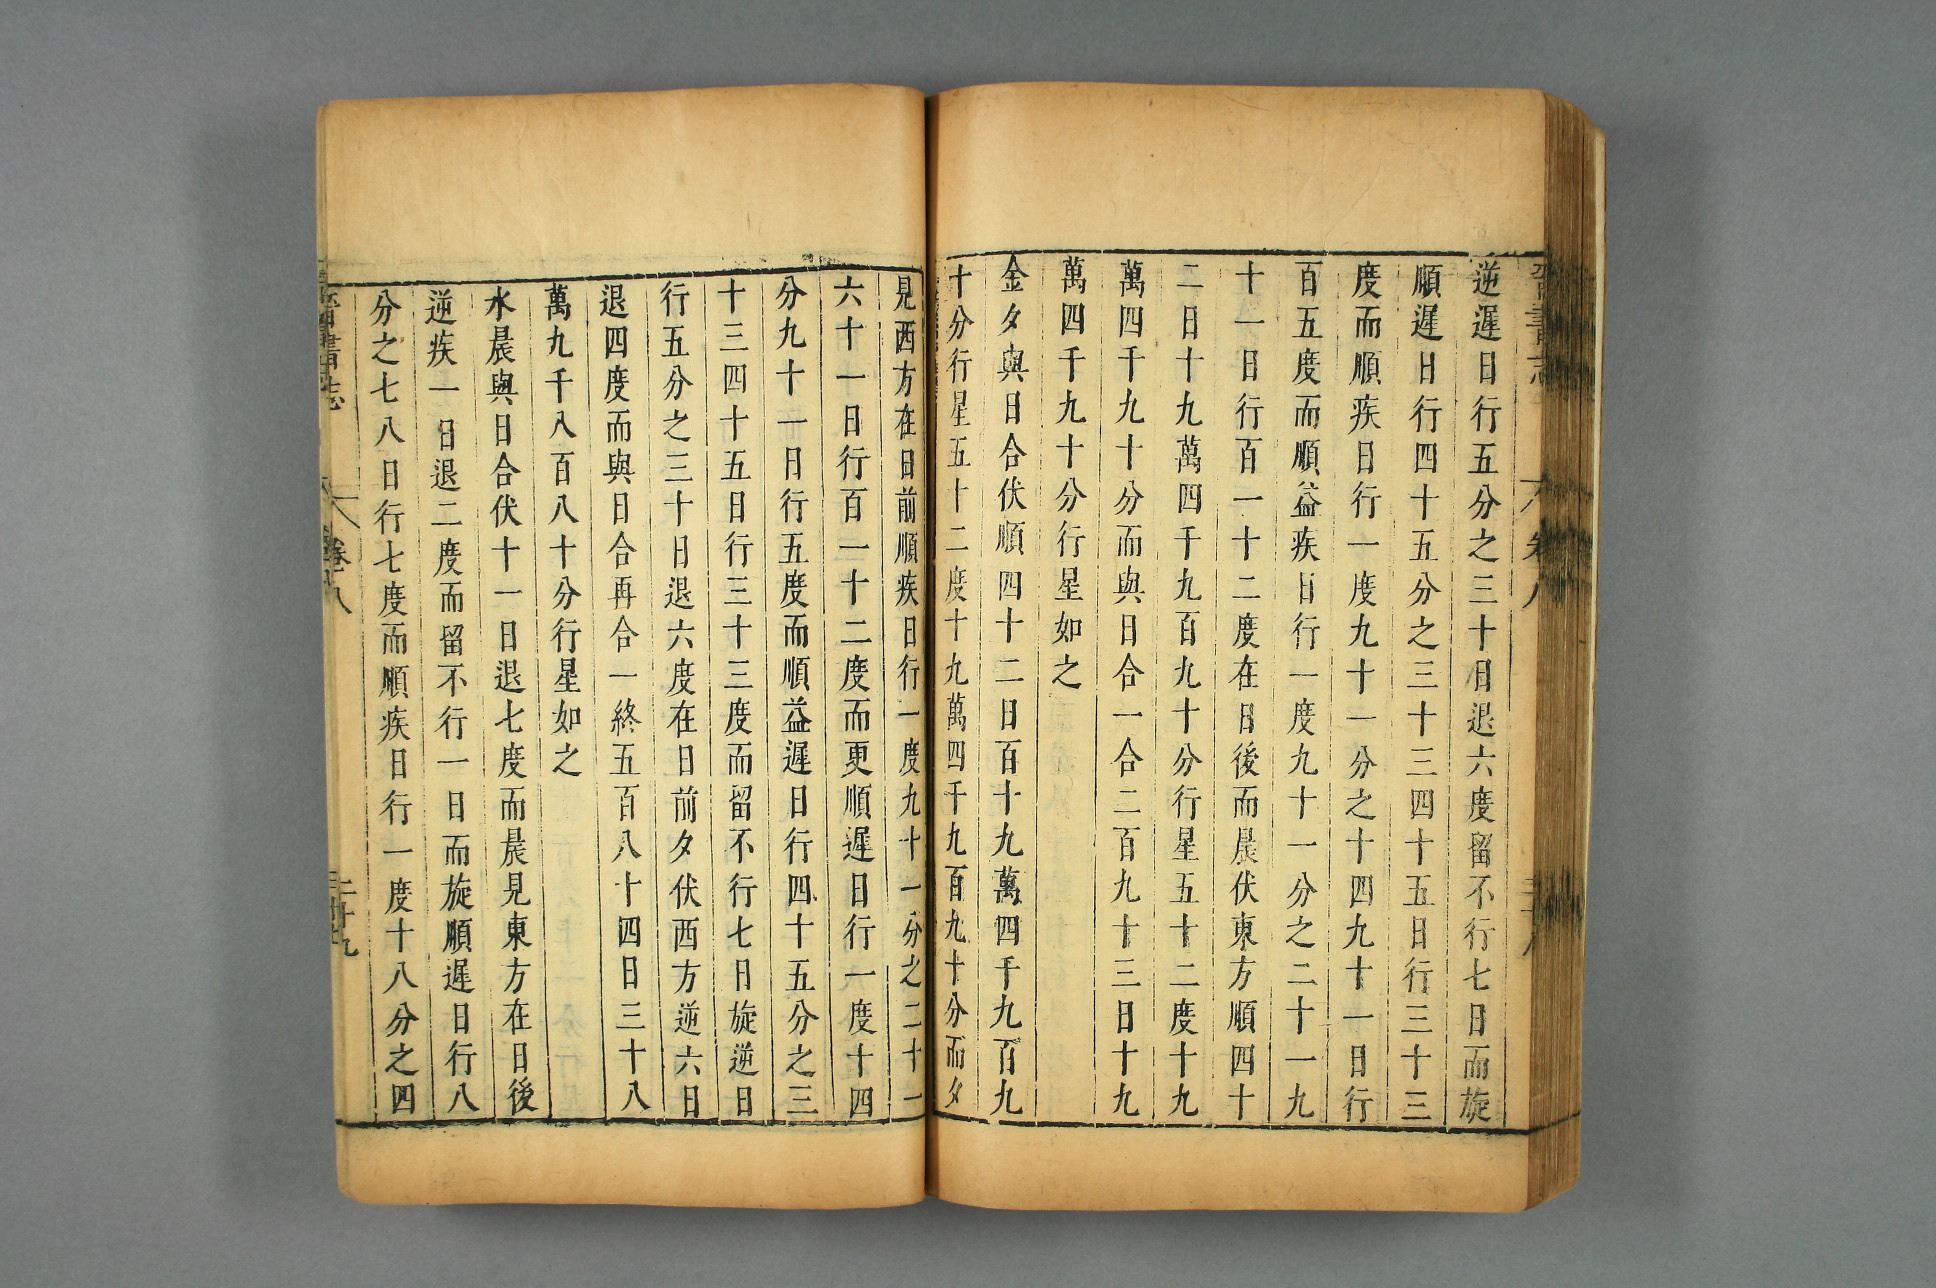 逆遲日行五分之三十日退六度留不行七日而旋
順遲日行四十五分之三十三四十五日行三十三
度而順疾日行一度九十一分之十四九十一日行
百五度而順益疾日行一度九十一分之二十一九
十一日行百一十二度在日後而晨伏東方順四十
二日十九萬四千九百九十分行星五十二度十九
萬四千九十分而與日合一合二百九十三日十九
萬四千九十分行星如之
金夕與日合伏順四十二日百十九萬四千九百九
十分行星五十二度十九萬四千九百九十分而夕
見西方在日前順疾日行一度九十一分之二十二
六十一日行百一十二度而更順遲日行一度十四
分九十一日行五度而順益遲日行四十五分之三
十三四十五日行三十三度而留不行七日旋逆日
行五分之三十日退六度在日前夕伏西方逆六日
退四度而與日合再合一終五百八十四日三十八
萬九千八百八十分行星如之
水晨與日合伏十一日退七度而晨見東方在日後
逆疾一日退二度而留不行一日而旋順遲日行八
分之七八日行七度而順疾日行一度十八分之四
晉書志
卷八
二十九